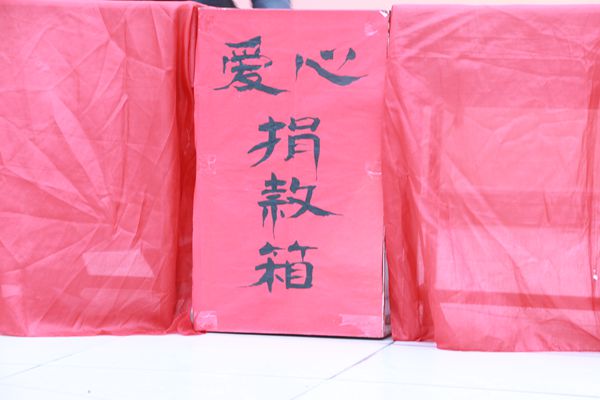 爱心
捐
款
箱